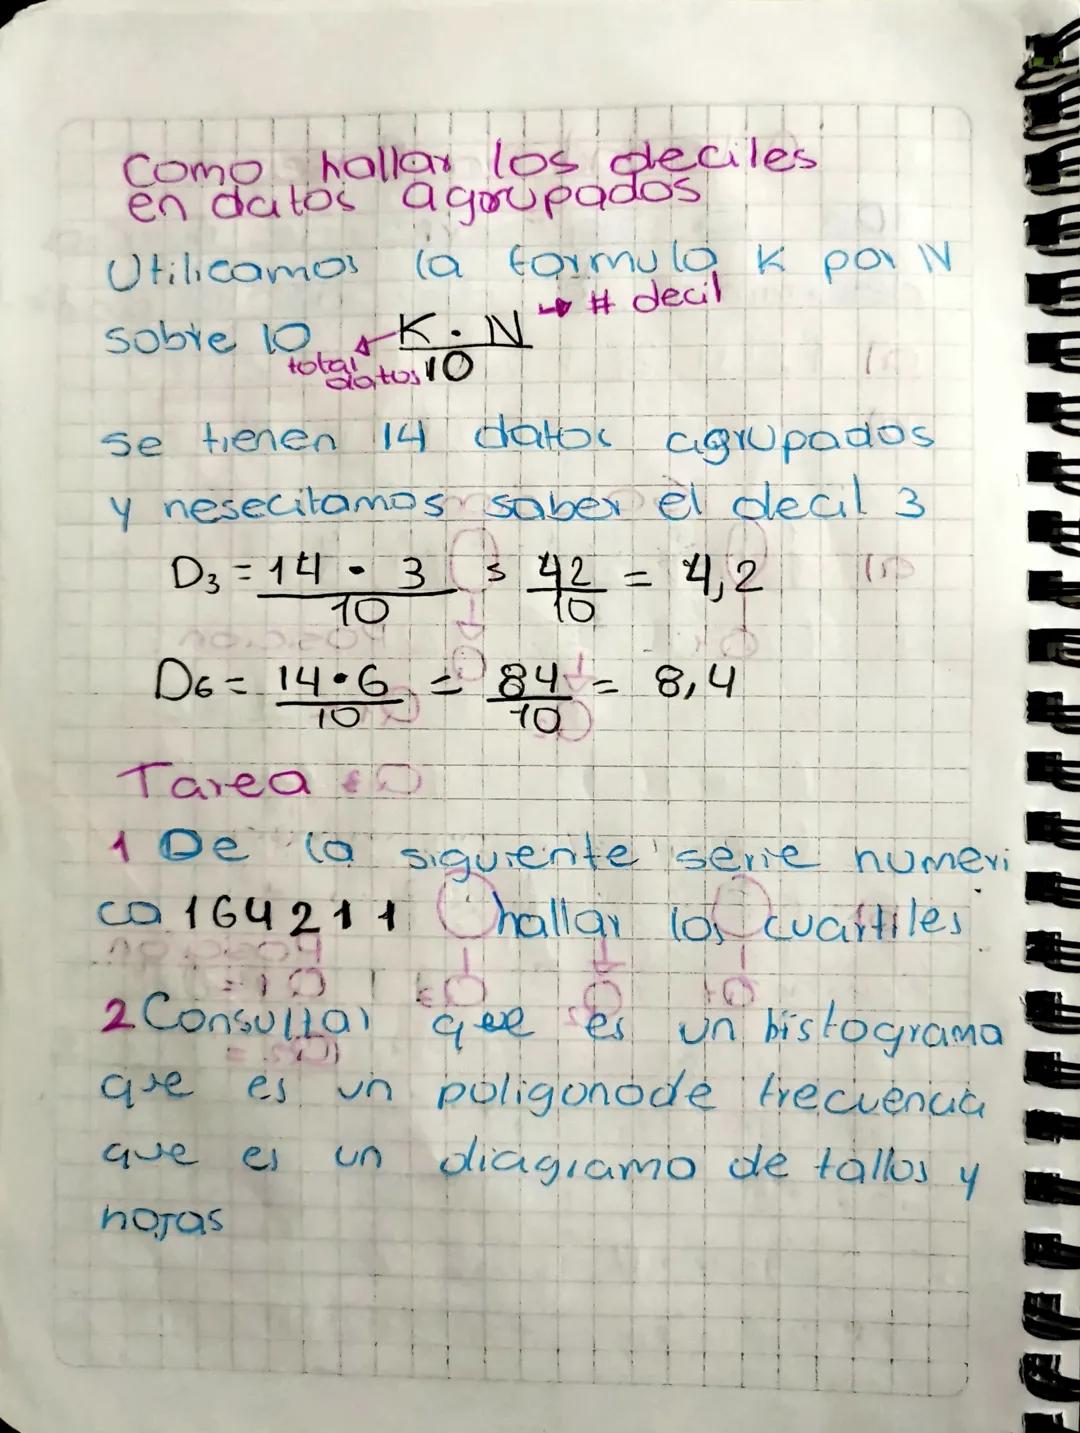 como hallar los deciles
en datos agorupados
Utilicamos la formula K por N
sobre 10 K . N → # decil
total datos 10
se tienen 14 datos agrupados
y nesecitamos saber el decil 3
D3 = 14 • 3 / 10 = 42 / 10 = 4,2
D6 = 14 • 6 / 10 = 84 / 10 = 8,4
Tarea
1 De la siguiente serie numeri
ca 164211 hallar los cuartiles
2 Consultar que es un histograma
que es un poligono de frecuencia
que es un diagramo de tallos y
hojas